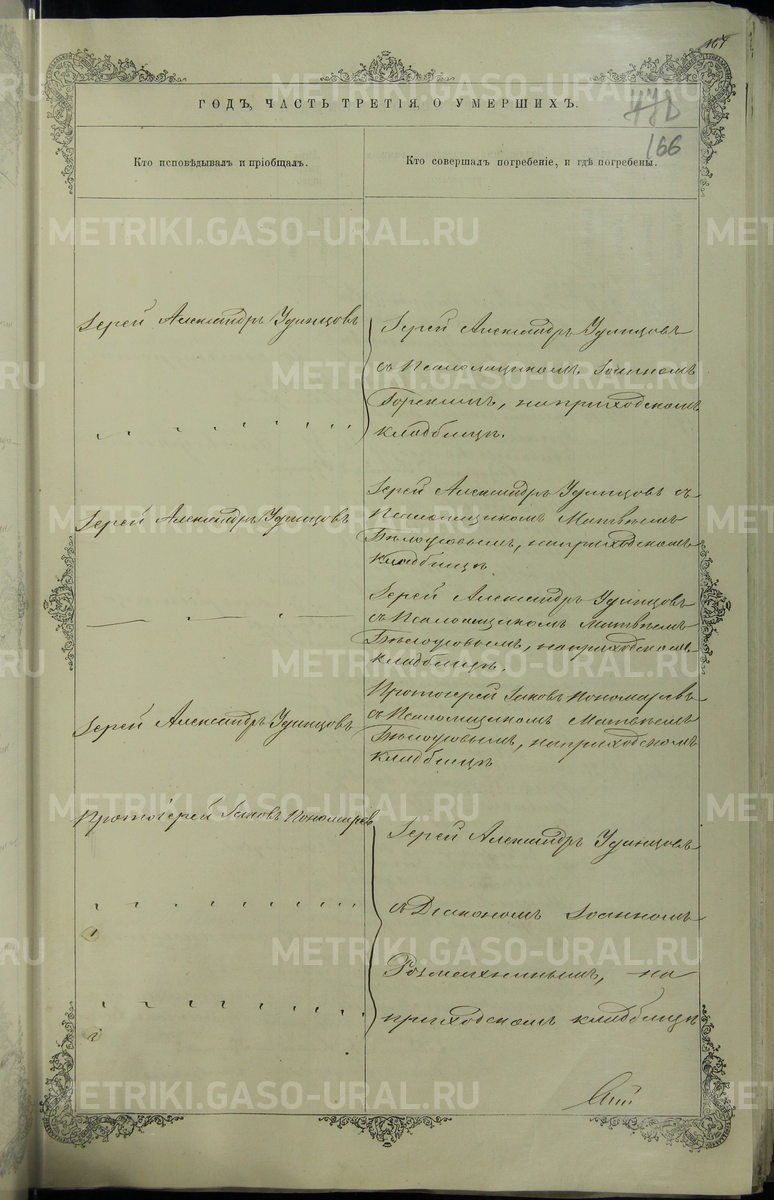 167
ГОДЪ, ЧАСТЬ ТРЕТІЯ, О УМЕРШИХЪ.
166
Кто исповѣдывалъ и пріобщалъ.
Кто совершалъ погребеніе, и гдѣ погребены.
Іерей Александръ Удинцовъ
Іерей Александръ Удинцовъ
съ Псаломщикомъ Іоанномъ
Горскимъ, на приходскомъ
кладбищѣ.
Іерей Александръ Удинцовъ
Іерей Александръ Удинцовъ съ
Псаломщикомъ Матвѣемъ
Бѣлоусовымъ, на приходскомъ
кладбищѣ
Іерей Александръ Удинцовъ
съ Псаломщикомъ Матвѣемъ
Бѣлоусовымъ, на приходскомъ
кладбищѣ.
Іерей Александръ Удинцовъ
Протоіерей Іаковъ Пономаревъ
съ Псаломщикомъ Матвѣемъ
Бѣлоусовымъ, на приходскомъ
кладбищѣ
Протоіерей Іаковъ Пономаревъ
Іерей Александръ Удинцовъ
съ Діакономъ Іоанномъ
на
приходскомъ кладбищѣ
METRIKI.GASO-URAL.RU